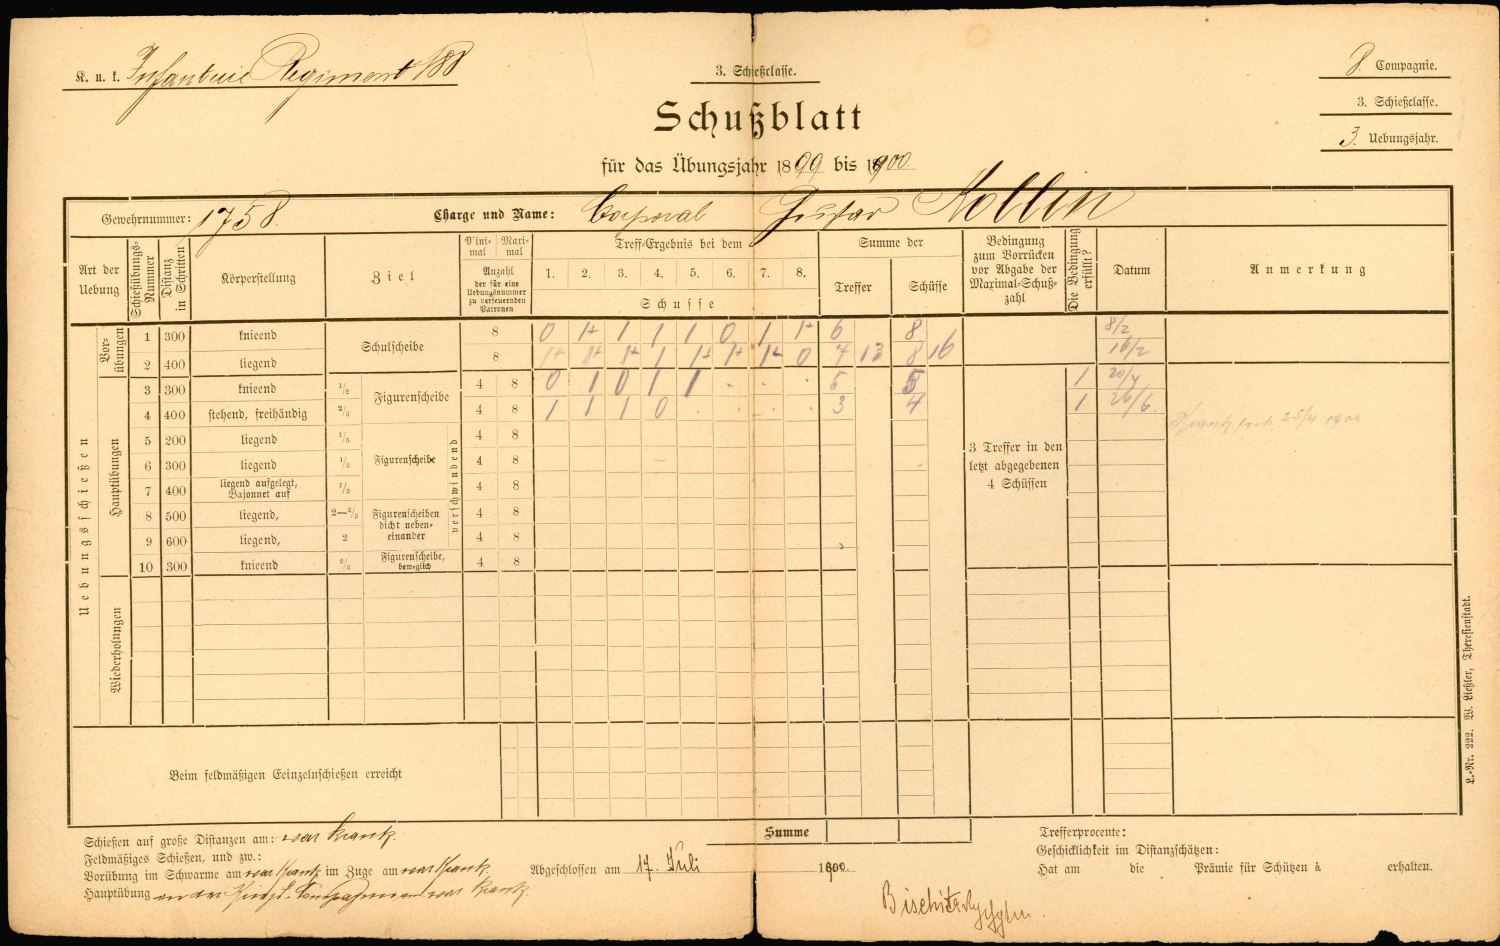 K. u. k. Infanterie Regiment 88
3. Schießclasse.
8. Compagnie.
3. Schießclasse.
3. Uebungsjahr.
Schußblatt
für das Übungsjahr 1899 bis 1900
Gewehrnummer: 1758. Charge und Name: Corporal Gustav Kollin
Art der Uebung
Schießübungs-Nummer
Distanz in Schritten
Körperstellung
Ziel
Mini-mal Maxi-mal
Anzahl der für eine Uebungsnummer zu verfeuernden Patronen
Treff-Ergebnis bei dem
1. 2. 3. 4. 5. 6. 7. 8.
Schusse
Summe der
Treffer Schüsse
Bedingung zum Vorrücken vor Abgabe der Maximal-Schuß-zahl
Die Bedingung erfüllt?
Datum
Anmerkung
Uebungsschießen
Vor-übungen
1 300 knieend Schulscheibe 8 0 1+ 1 1 1 0 1 1+ 6 8 8/2
2 400 liegend 8 1+ 1+ 1+ 1 1+ 1+ 1+ 0 7 13 8 16 16/2
Hauptübungen
3 300 knieend 1/2 Figurenscheibe 4 8 0 1 0 1 1 . . . 5 5 1 20/4
4 400 stehend, freihändig 2/3 4 8 1 1 1 0 . . . . 3 4 1 26/6.
25/4 1900
5 200 liegend 1/3 4 8
6 300 liegend 1/3 Figurenscheibe 4 8
7 400 liegend aufgelegt, Bajonnet auf 1/2 4 8
8 500 liegend, 2—2/3 Figurenscheiben dicht neben-einander 4 8
9 600 liegend, 2 4 8
verschwindend
10 300 knieend 2/3 Figurenscheibe, beweglich 4 8
3 Treffer in den letzt abgegebenen 4 Schüssen
Wiederholungen
Beim feldmäßigen Eeinzelnschießen erreicht
L.-Nr. 222. W. Ließler, Theresienstadt.
Summe
Schießen auf große Distanzen am: war krank.
Feldmäßiges Schießen, und zw.:
Vorübung im Schwarme am war krank im Zuge am war krank.
Hauptübung in der Kriegs-Compagnie am war krank.
Abgeschlossen am 17. Juli 1900.
Trefferprocente:
Geschicklichkeit im Distanzschätzen:
Hat am die Prämie für Schützen à erhalten.